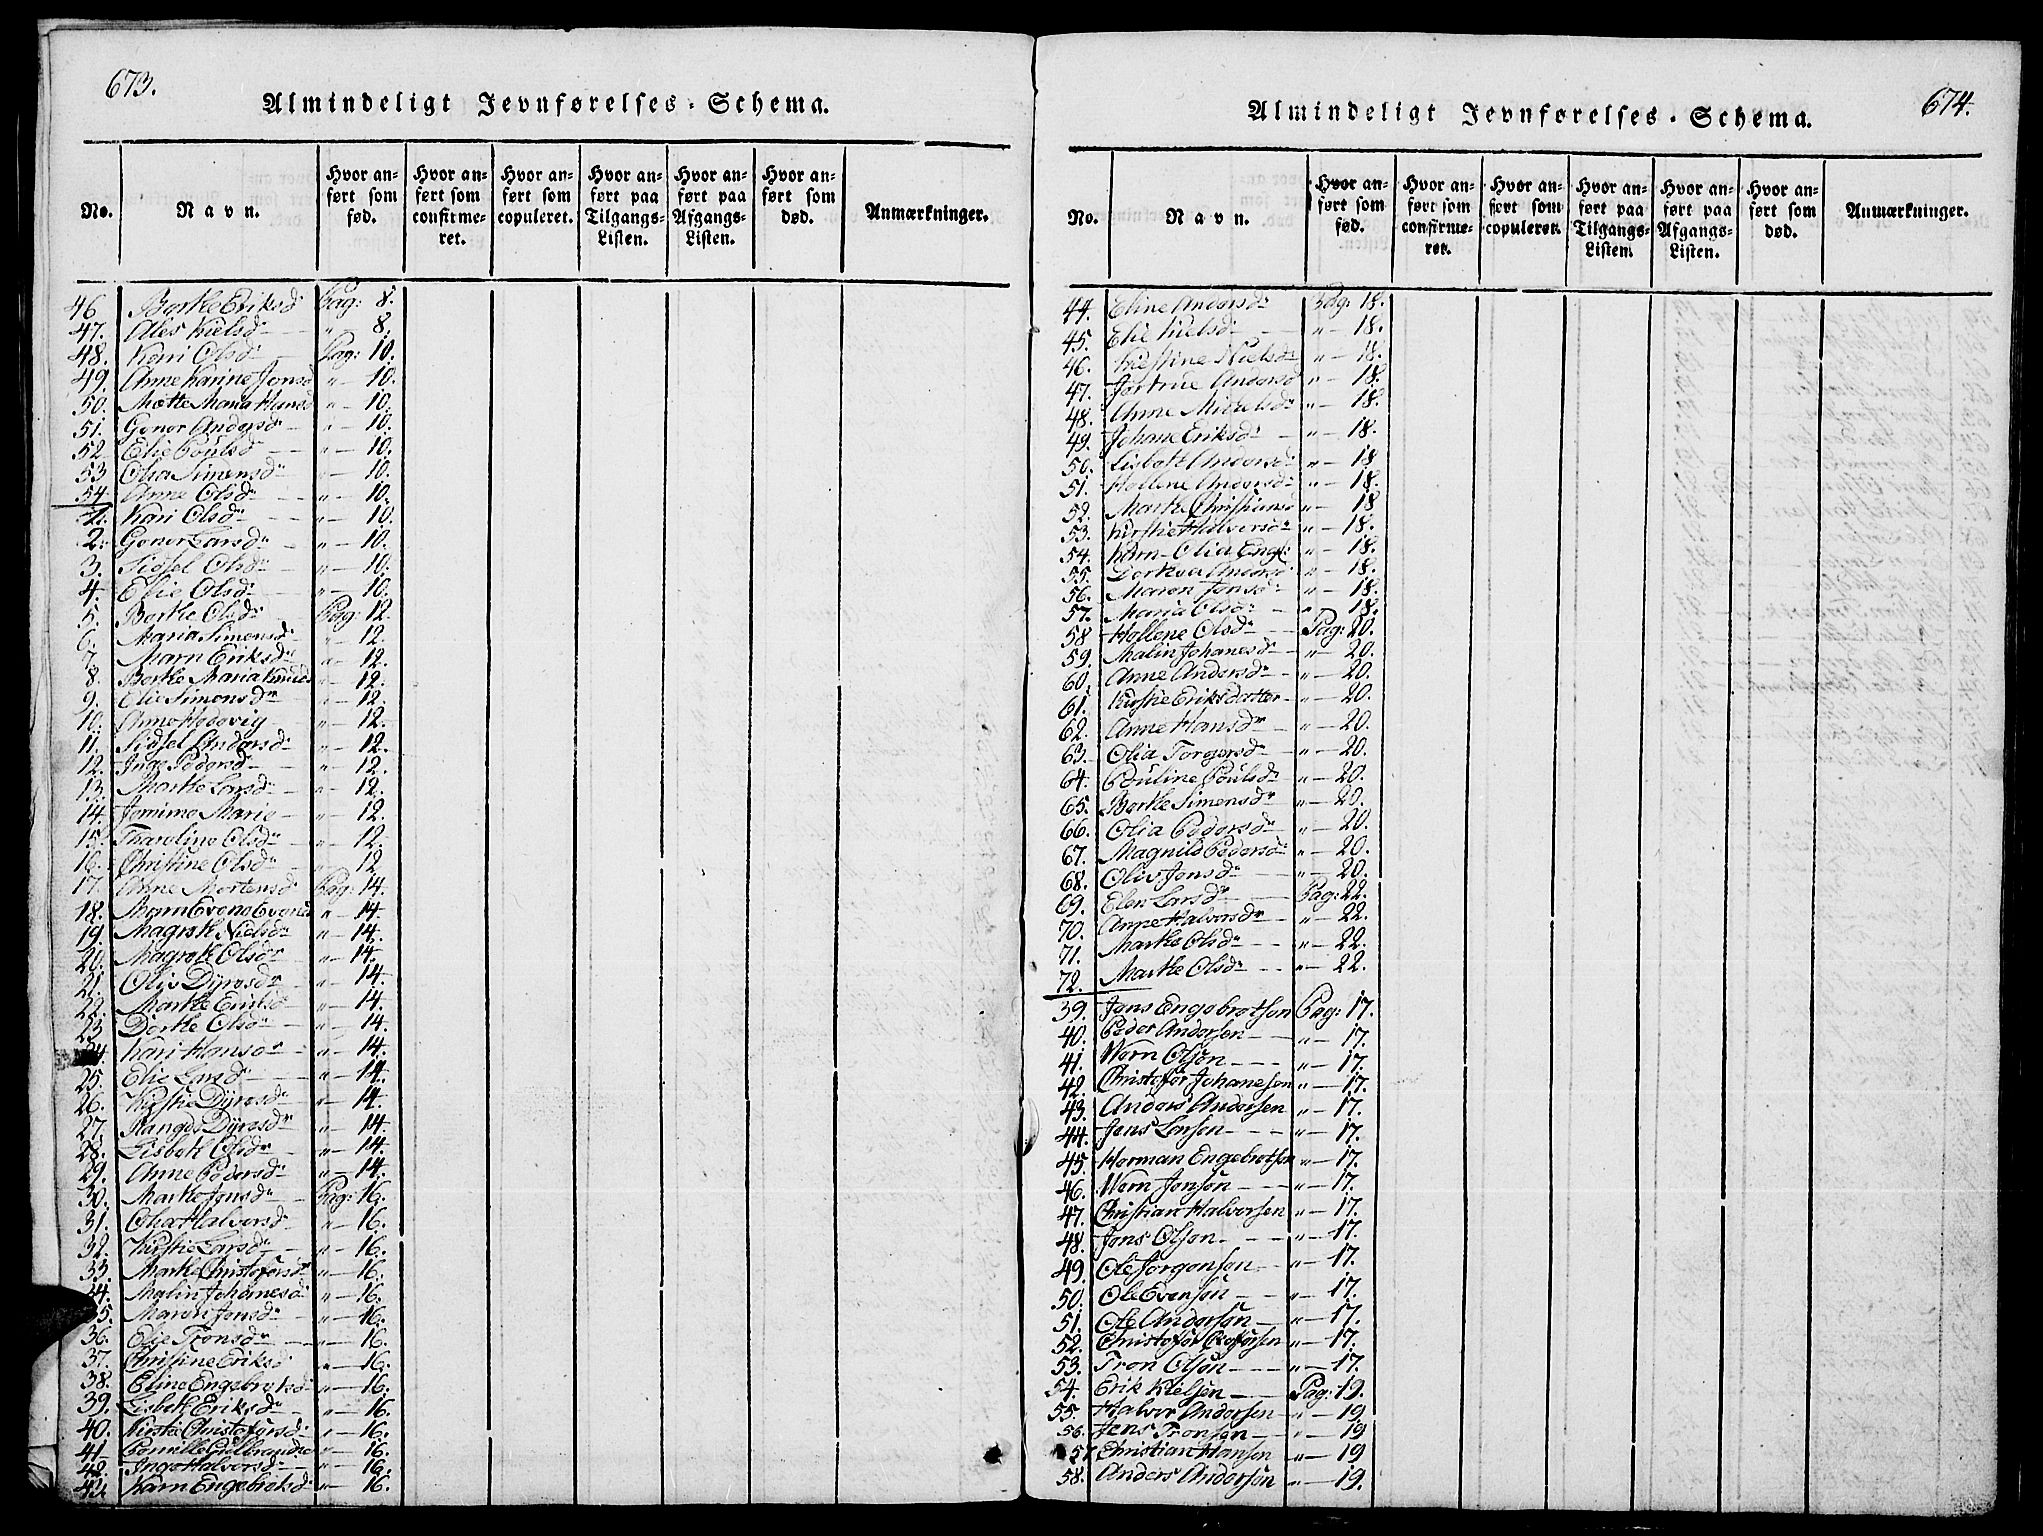 673.
Almindeligt Jevnførelses-Schema.
No. Navn. Hvor anført som fød. Hvor anført som confirmeret. Hvor anført som copuleret. Hvor anført paa Tilgangs-Listen. Hvor anført paa Afgangs-Listen. Hvor anført som død. Anmærkninger.
46 Berthe Eriksdr Pag: 8.
47. Ales Kielsdr " 8.
48. Kari Olsdr Pag: 10.
49. Anne Karine Jensd " — 10.
50. Mette Maria Hansd " — 10.
51. Gunor Andersdr " — 10.
52 Elie Poulsd " — 10.
53 Olia Simensdr " — 10.
54 Anne Olsdr " — 10.
1. Kari Olsdr " — 10.
2. Gunor Larsdr " — 10.
3. Sidsel Olsdr " — 10.
4. Elie Olsdr " — 10.
5. Berthe Olsdr Pag: 12.
6. Maria Simensdr " 12.
7. Marn Eriksdr " — 12.
8. Berthe Maria Knuds " — 12.
9. Elie Simensdr " — 12.
10. Anne Hedevig " — 12.
11. Sidsel Andersdr " — 12.
12. Inge Pedersdr " — 12.
13. Marthe Larsdr " — 12.
14. Jomime Marie " — 12.
15. Tharoline Olsdr " — 12.
16. Christine Olsdr " 12
17. Anne Mortensd Pag: 14.
18. Marn Evens " — 14.
19. Magreth Nielsdr " — 14.
20. Magreth Olsdr " — 14.
21. Olis Dyresdr " — 14.
22. Marthe Emilsd " — 14.
23 Dorthe Olsdr " — 14.
24. Kari Hansdr " — 14.
25. Elie Larsd " — 14.
26. Kirstie Dyresdr " — 14.
27. Rangdi Dyresdr " — 14.
28. Lisbeth Olsdr " — 14.
29. Anne Pedersdr " — 14.
30. Marthe Jensdr Pag: 16.
31. Olia Halvorsd " — 16.
32. Kirstie Larsdr " — 16.
33. Marthe Christofersdr " — 16.
34. Malin Johanesd " — 16.
35. Maren Jensdr " — 16.
36. Elie Tronsdr " — 16.
37. Christine Eriksd " — 16.
38. Eline Engebrethsd " — 16.
39. Lisbeth Eriksdr " — 16.
40. Kirstie Christofersd " — 16.
41. Pernille Gulbrandsd " — 16.
42. Inge Halvorsdr " — 16.
43 Karn Engebrethsdr " — 16.
674.
Almindeligt Jevnførelses-Schema.
No. Navn. Hvor anført som fød. Hvor anført som confirmeret. Hvor anført som copuleret. Hvor anført paa Tilgangs-Listen. Hvor anført paa Afgangs-Listen. Hvor anført som død. Anmærkninger.
44. Eline Andersdr Pag: 18.
45. Elie Kielsdr " — 18.
46. Christine Nielsdr " — 18.
47. Jertrue Andersd " — 18.
48. Anne Mickelsdr " — 18.
49. Johane Eriksdr " — 18.
50. Lisbeth Andersdr " — 18
51. Hellene Andersdr " — 18.
52. Marthe Christiansd " — 18
53. Kirstie Halversdr " — 18.
54. Karn Olia Eng: " — 18.
55. Dorthea Andersd " — 18.
56. Maren Jensdr " — 18.
57. Maria Olsdr " 18.
58 Hellene Olsdr Pag: 20.
59. Malin Johanesdr " — 20.
60. Anne Andersdr " — 20.
61. Kirstie Eriksdatter " — 20.
62. Anne Hansdr " — 20.
63. Olia Torgersdr " — 20.
64. Pauline Poulsdr " — 20.
65. Berthe Simensdr " — 20.
66. Olia Pedersdr " — 20.
67. Magnild Pedersdr " — 20.
68. Olis Jensdr " — 20.
69. Elen Larsdr Pag: 22.
70. Anne Halvorsdr " — 22.
71. Marthe Olsdr " — 22.
72. Marthe Olsdr " — 22.
39. Jens Engebrethsen Pag: 17.
40. Peder Andersen " — 17.
41. Wern Olsen " — 17.
42. Christofer Johanesen " — 17.
43. Anders Andersen " — 17.
44. Jens Larsen " — 17.
45. Herman Engebretsen " — 17.
46. Wern Jensen " — 17.
47. Christian Halvorsen " — 17.
48. Jens Olsen " — 17.
49. Ole Jorgensen " — 17.
50. Ole Evensen " — 17.
51. Ole Andersen " — 17.
52. Christofer Olofersen " — 17.
53. Tron Olsen " — 17.
54. Erik Kielsen Pag: 19.
55. Halvor Andersen " — 19
56. Jens Tronsen " — 19
57 Christian Hansen " — 19
58. Anders Andersen " — 19.